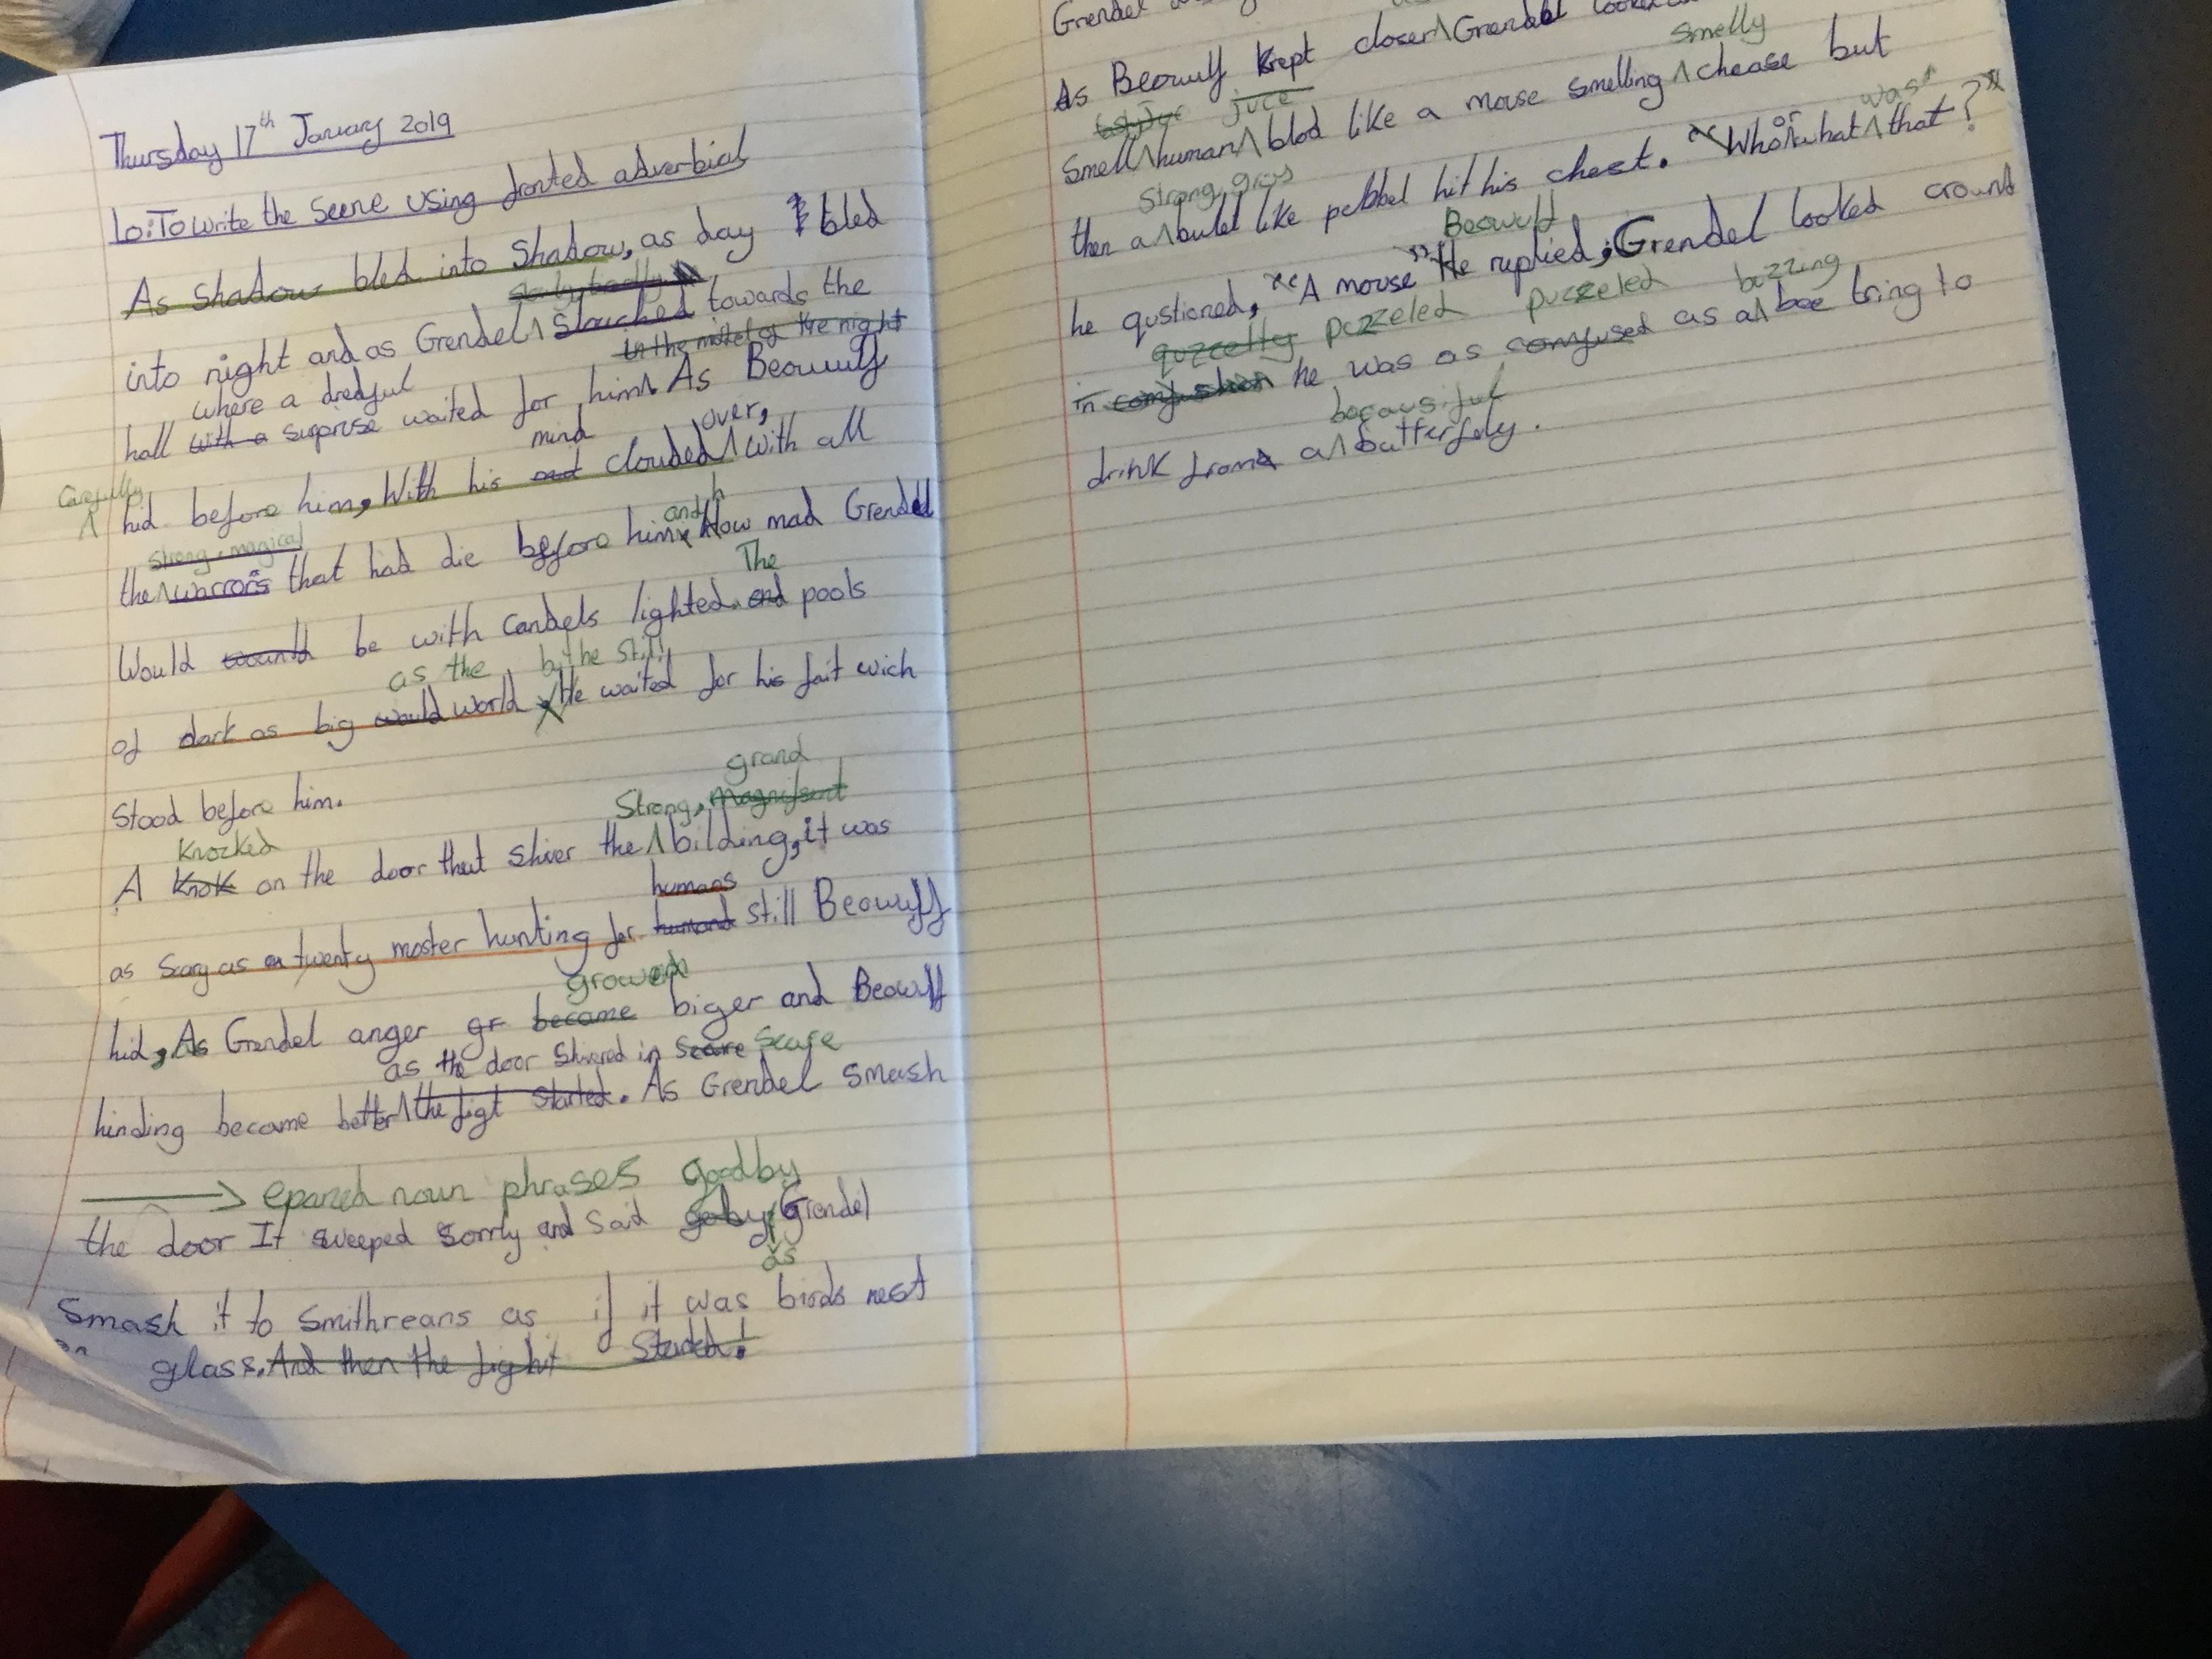 Thursday 17th January 2019
Lo: To write the scene using fronted adverbial
As shadow bled into shadow, as day bled
into night and as Grendel slouched towards the
in the mist of the night
where a dredful
hall with a surprise waited for him. As Beowulf
mind over,
Carefully hid before him, With his clouded with all
strong, magical and h
the warrors that had die before him How mad Grendel
The
Would be with candels lighted. and pools
as the the still
of dark as big would world He waited for his fait wich
Stood before him.
grand
Strong, magnifsent
Knocked
A Knok on the door that shiver the bilding, it was
humans
as scary as a twenty moster hunting for still Beowulf
hid, As Grendel anger gr became biger and Beowulf
as the door shivered in scare scare
hinding became better the figt started. As Grendel smash
epaned noun phrases goodby
the door It sweeped sorrly and said Grendel
as
Smash it to smithreans as if it was birds nest
glass. And then the fight Started!
Grendel
As Beowulf krept closer Grendel
smelly
juce
Smell human blod like a mouse smelling chease but
or was
strong, gras
then a bulet like pebbel hit his chest. "Who what that?"
Beowulf
he qustioned, "A mouse" He ruplied, Grendel looked around
puzzeled puzzeled buzzing
in confushon he was as confused as a bee tring to
drink from a butterfoly.